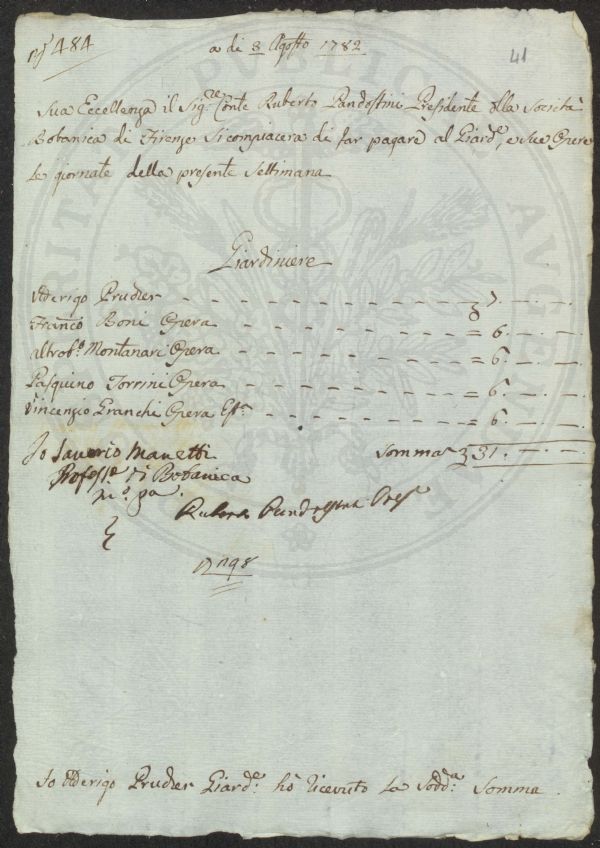 N.° 484
a di 8 Agosto 1782
41
Sua Eccellenza il Sig.re Conte Ruberto Pandolfini Presidente della Società
Botanica di Firenze Si compiacera di far pagare al Giard.e, e sue Opere
le giornate della presente Settimana
Giardiniere
Uderigo Prucher - - - - 7. — . —
Franco Boni Opera - - - - = 6. — . —
Altrob.o Montanari Opera - - - - = 6. — . —
Pasquino Torrini Opera - - - - = 6. — . —
Vincenzio Granchi Opera - - - - = 6. — . —
Somma 31. — . —
Io Saverio Manetti
Profess.e di Botanica
m.o pa
Ruberto Pandolfini Pres.e
N 98
Io Uderigo Prucher Giard.e hò ricevuto La Sodd.a Somma
VERITAS PUBLICA